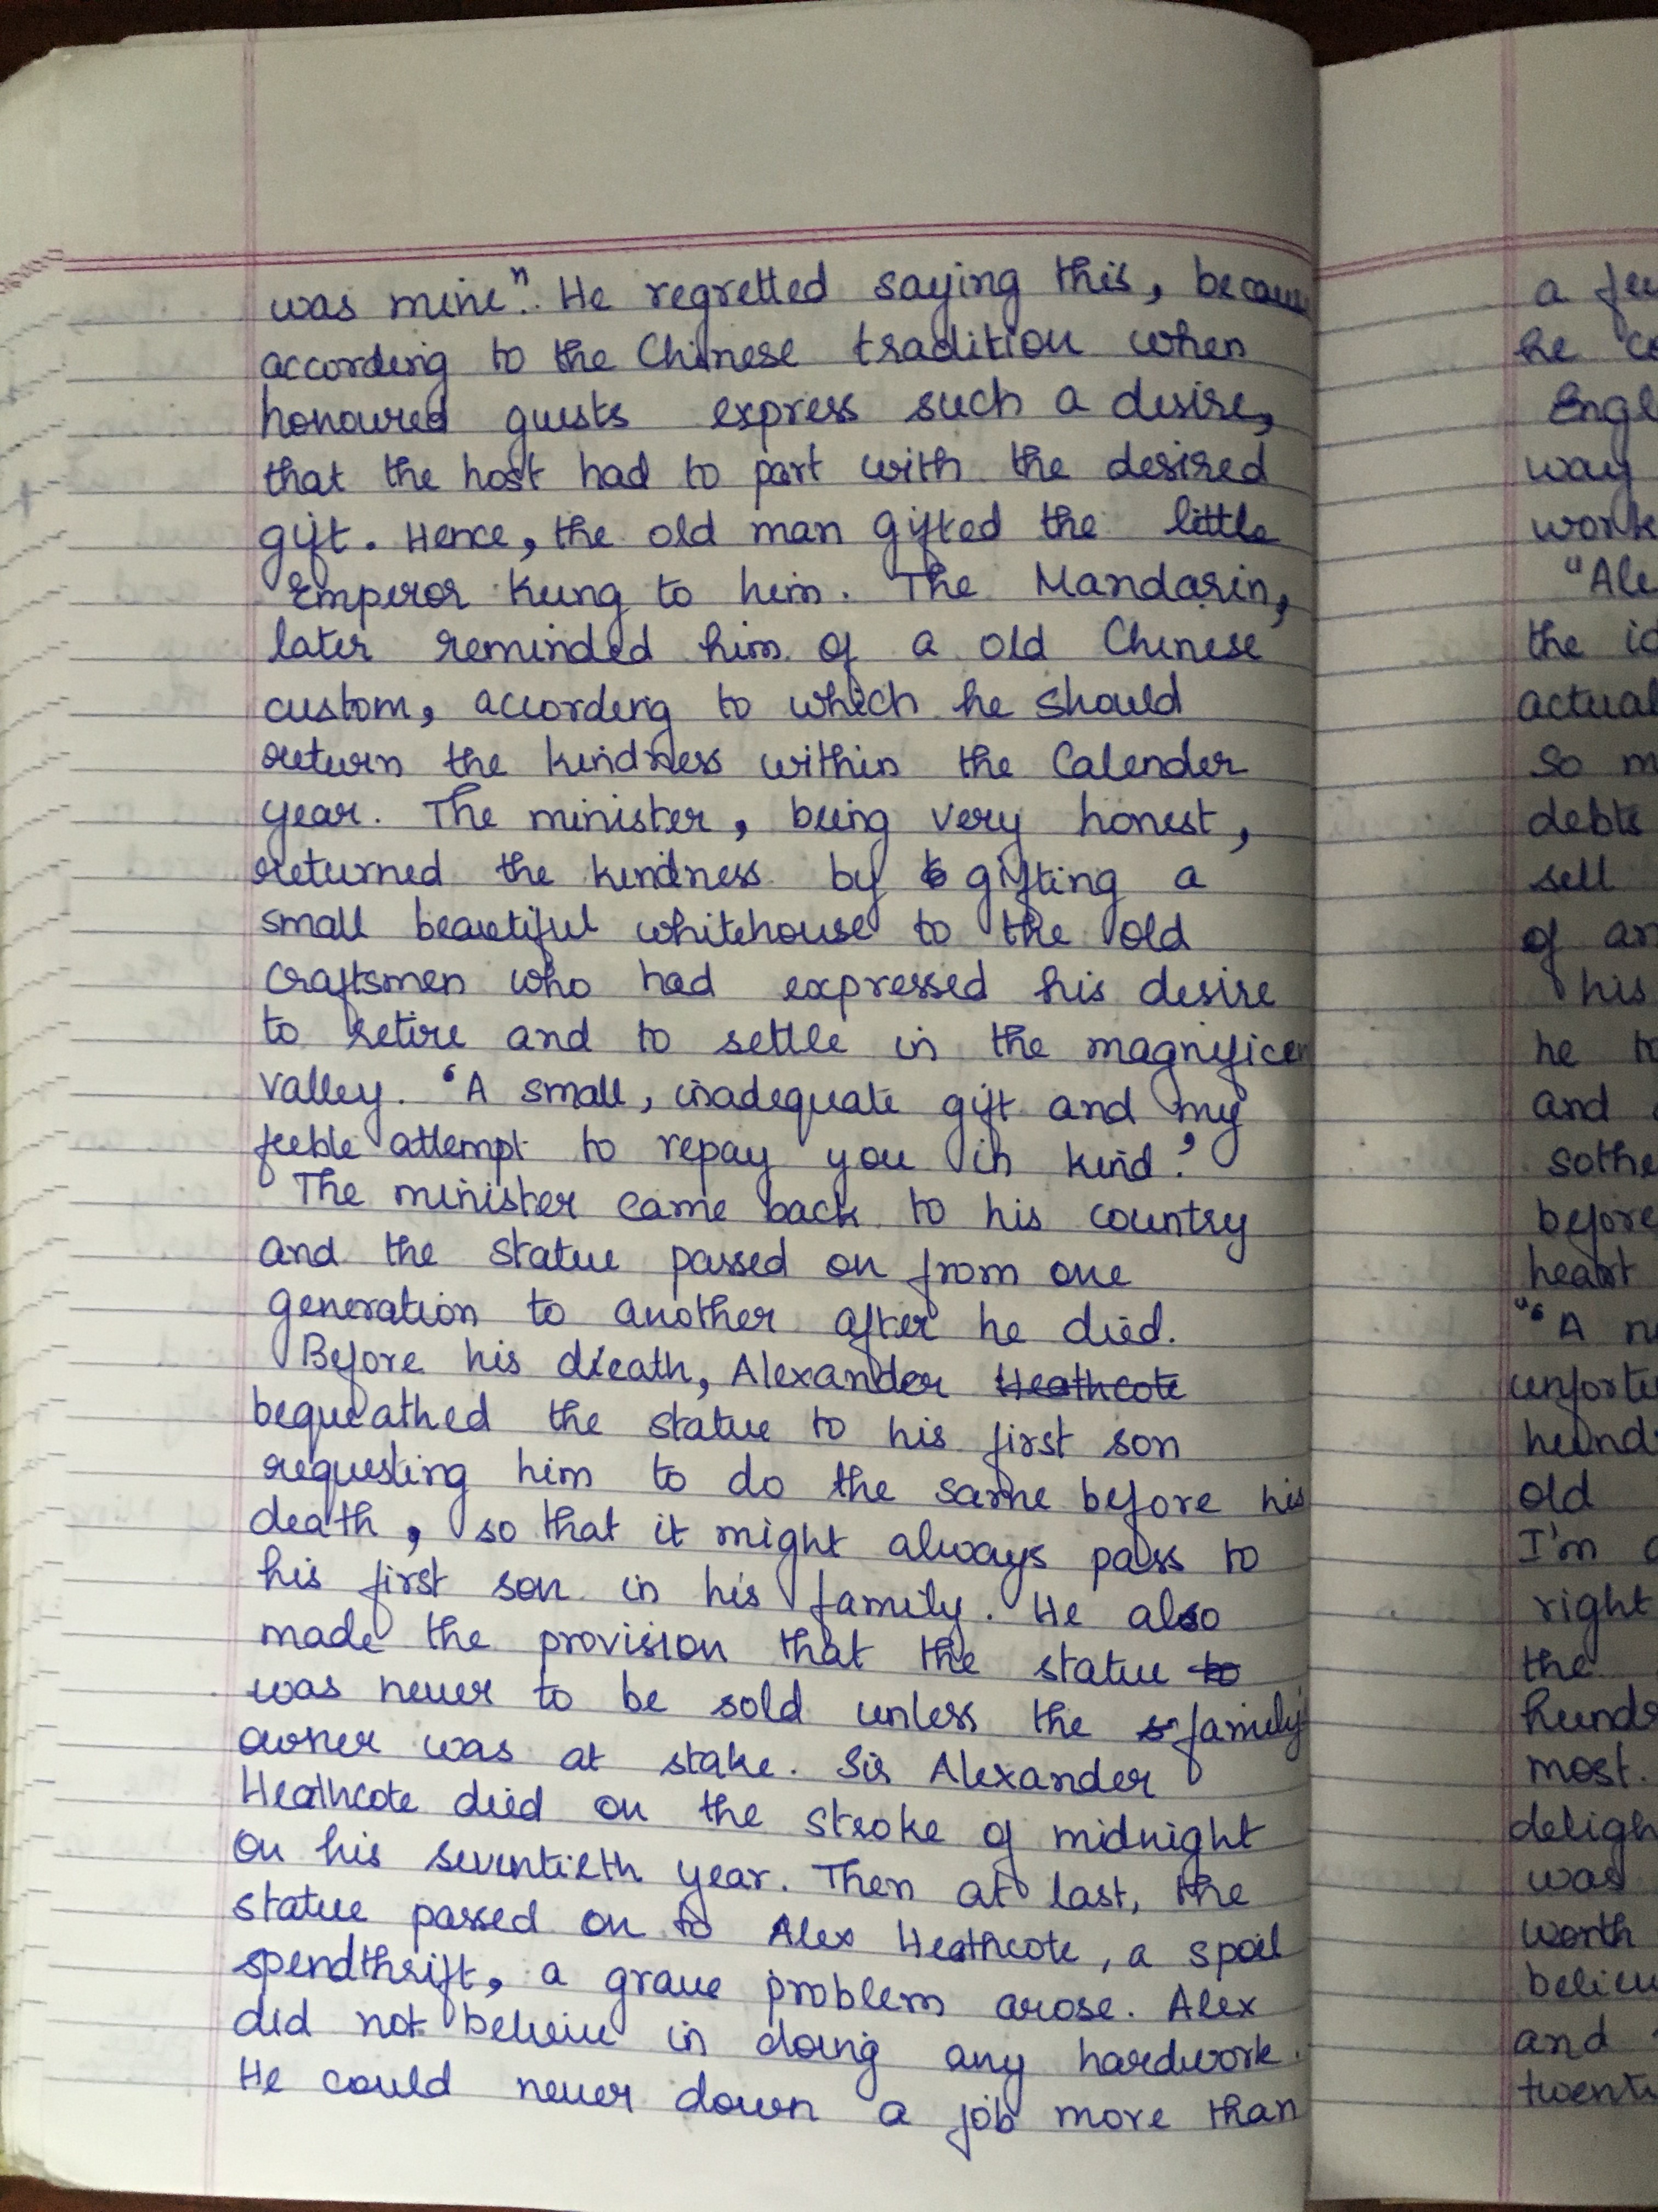 was mine". He regretted saying this, becau
according to the Chinese tradition when
honoured guests express such a desire,
that the host had to part with the desired
gift. Hence, the old man gifted the little
Emperor Kung to him. The Mandarin,
later reminded him of a old Chinese
custom, according to which he should
return the kindness within the Calender
year. The minister, being very honest,
returned the kindness by gifting a
small beautiful whitehouse to the old
craftsmen who had expressed his desire
to retire and to settle in the magnificen
valley. 'A small, inadequate gift and my
feeble attempt to repay you in kind.'
The minister came back to his country
and the statue passed on from one
generation to another after he died.
Before his death, Alexander Heathcote
bequeathed the statue to his first son
requesting him to do the same before his
death, so that it might always pass to
his first son in his family. He also
made the provision that the statue to
was never to be sold unless the family
owner was at stake. Sir Alexander
Heathcote died on the stroke of midnight
on his seventieth year. Then at last, the
statue passed on to Alex Heathcote, a spoil
spendthrift, a grave problem arose. Alex
did not believe in doing any hardwork.
He could never down a job more than
a few
he
Engl
way
work
"Ale
the
actual
So m
debts
sell
of
his
he
and
sothe
before
heart
"'A n
unfortu
hund
old
I'm
right
the
hundr
most.
deligh
was
worth
believ
and
twent